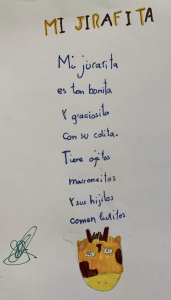 MI JIRAFITA
Mi jirarita
es tan bonita
Y graciosita
con su colita.
Tiene ojitos
marroncitos
Y sus hijitos
comen frutitos.